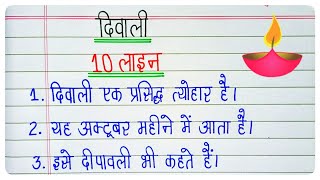 दिवाली
10 लाइन
1. दिवाली एक प्रसिद्ध त्योहार है।
2. यह अक्टूबर महीने में आता है।
3. इसे दीपावली भी कहते हैं।